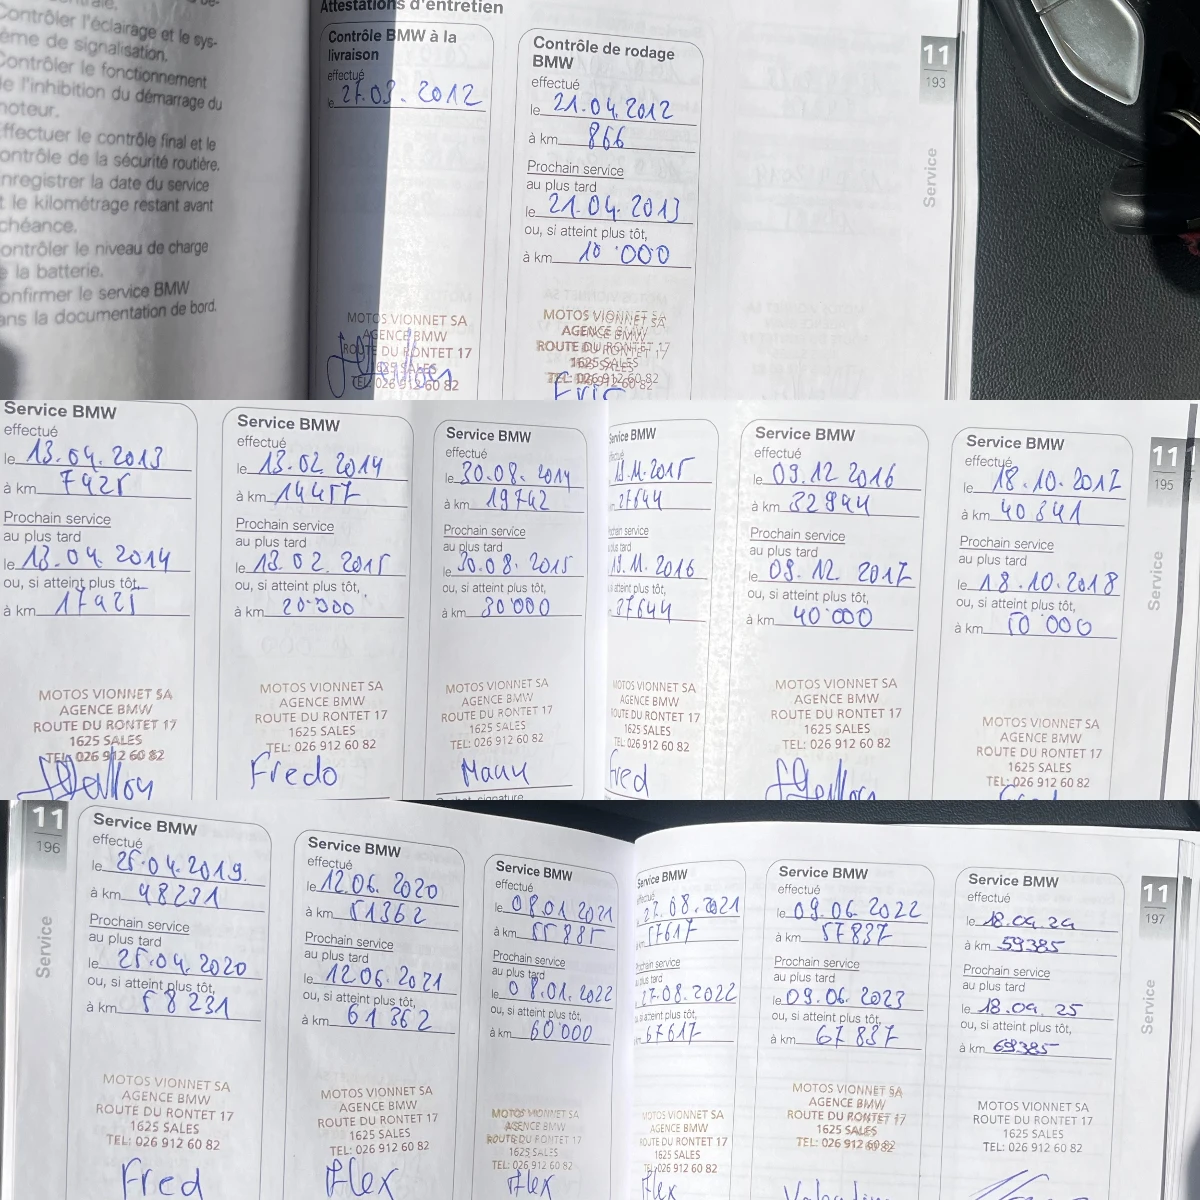 ontrôler l'éclairage et le sys-
ème de signalisation.
ontrôler le fonctionnement
e l'inhibition du démarrage du
moteur.
ffectuer le contrôle final et le
ontrôle de la sécurité routière.
nregistrer la date du service
t le kilométrage restant avant
chéance.
ontrôler le niveau de charge
la batterie.
onfirmer le service BMW
ans la documentation de bord.
Attestations d'entretien
Contrôle BMW à la
livraison
effectué
le 27.03.2012
MOTOS VIONNET SA
AGENCE BMW
ROUTE DU RONTET 17
1625 SALES
TEL: 026 912 60 82
Contrôle de rodage
BMW
effectué
le 21.04.2012
à km 866
Prochain service
au plus tard
le 21.04.2013
ou, si atteint plus tôt,
à km 10'000
MOTOS VIONNET SA
AGENCE BMW
ROUTE DU RONTET 17
1625 SALES
TEL: 026 912 60 82
Eric
11
193
Service
Service BMW
effectué
le 13.04.2013
à km 7425
Prochain service
au plus tard
le 13.04.2014
ou, si atteint plus tôt,
à km 17425
MOTOS VIONNET SA
AGENCE BMW
ROUTE DU RONTET 17
1625 SALES
TEL: 026 912 60 82
Service BMW
effectué
le 13.02.2014
à km 14457
Prochain service
au plus tard
le 13.02.2015
ou, si atteint plus tôt,
à km 20'000
MOTOS VIONNET SA
AGENCE BMW
ROUTE DU RONTET 17
1625 SALES
TEL: 026 912 60 82
Fredo
Service BMW
effectué
le 30.08.2014
à km 19742
Prochain service
au plus tard
le 30.08.2015
ou, si atteint plus tôt,
à km 30'000
MOTOS VIONNET SA
AGENCE BMW
ROUTE DU RONTET 17
1625 SALES
TEL: 026 912 60 82
Manu
signature
Service BMW
effectué
19.11.2015
27644
Prochain service
au plus tard
19.11.2016
si atteint plus tôt,
37644
MOTOS VIONNET SA
AGENCE BMW
ROUTE DU RONTET 17
1625 SALES
TEL: 026 912 60 82
Fred
Service BMW
effectué
le 09.12 2016
à km 32944
Prochain service
au plus tard
le 09.12.2017
ou, si atteint plus tôt,
à km 40'000
MOTOS VIONNET SA
AGENCE BMW
ROUTE DU RONTET 17
1625 SALES
TEL: 026 912 60 82
Service BMW
effectué
le 18.10.2017
à km 40841
Prochain service
au plus tard
le 18.10.2018
ou, si atteint plus tôt,
à km 50'000
MOTOS VIONNET SA
AGENCE BMW
ROUTE DU RONTET 17
1625 SALES
TEL: 026 912 60 82
11
195
Service
11
196
Service
Service BMW
effectué
le 25.04.2019.
à km 48231
Prochain service
au plus tard
le 25.04.2020
ou, si atteint plus tôt,
à km 58231
MOTOS VIONNET SA
AGENCE BMW
ROUTE DU RONTET 17
1625 SALES
TEL: 026 912 60 82
Fred
Service BMW
effectué
le 12.06.2020
à km 51362
Prochain service
au plus tard
le 12.06.2021
ou, si atteint plus tôt,
à km 61362
MOTOS VIONNET SA
AGENCE BMW
ROUTE DU RONTET 17
1625 SALES
TEL: 026 912 60 82
Alex
Service BMW
effectué
le 08.01 2021
à km 55885
Prochain service
au plus tard
le 08.01.2022
ou, si atteint plus tôt,
à km 60'000
MOTOS VIONNET SA
AGENCE BMW
ROUTE DU RONTET 17
1625 SALES
TEL: 026 912 60 82
Alex
Service BMW
effectué
27.08.2021
57617
Prochain service
au plus tard
27.08.2022
si atteint plus tôt,
67617
MOTOS VIONNET SA
AGENCE BMW
ROUTE DU RONTET 17
1625 SALES
TEL: 026 912 60 82
Alex
Service BMW
effectué
le 09.06.2022
à km 57837
Prochain service
au plus tard
le 09.06.2023
ou, si atteint plus tôt,
à km 67837
MOTOS VIONNET SA
AGENCE BMW
ROUTE DU RONTET 17
1625 SALES
TEL: 026 912 60 82
Service BMW
effectué
le 18.04.24
à km 59385
Prochain service
au plus tard
le 18.04.25
ou, si atteint plus tôt,
à km 69385
MOTOS VIONNET SA
AGENCE BMW
ROUTE DU RONTET 17
1625 SALES
TEL: 026 912 60 82
11
197
Service